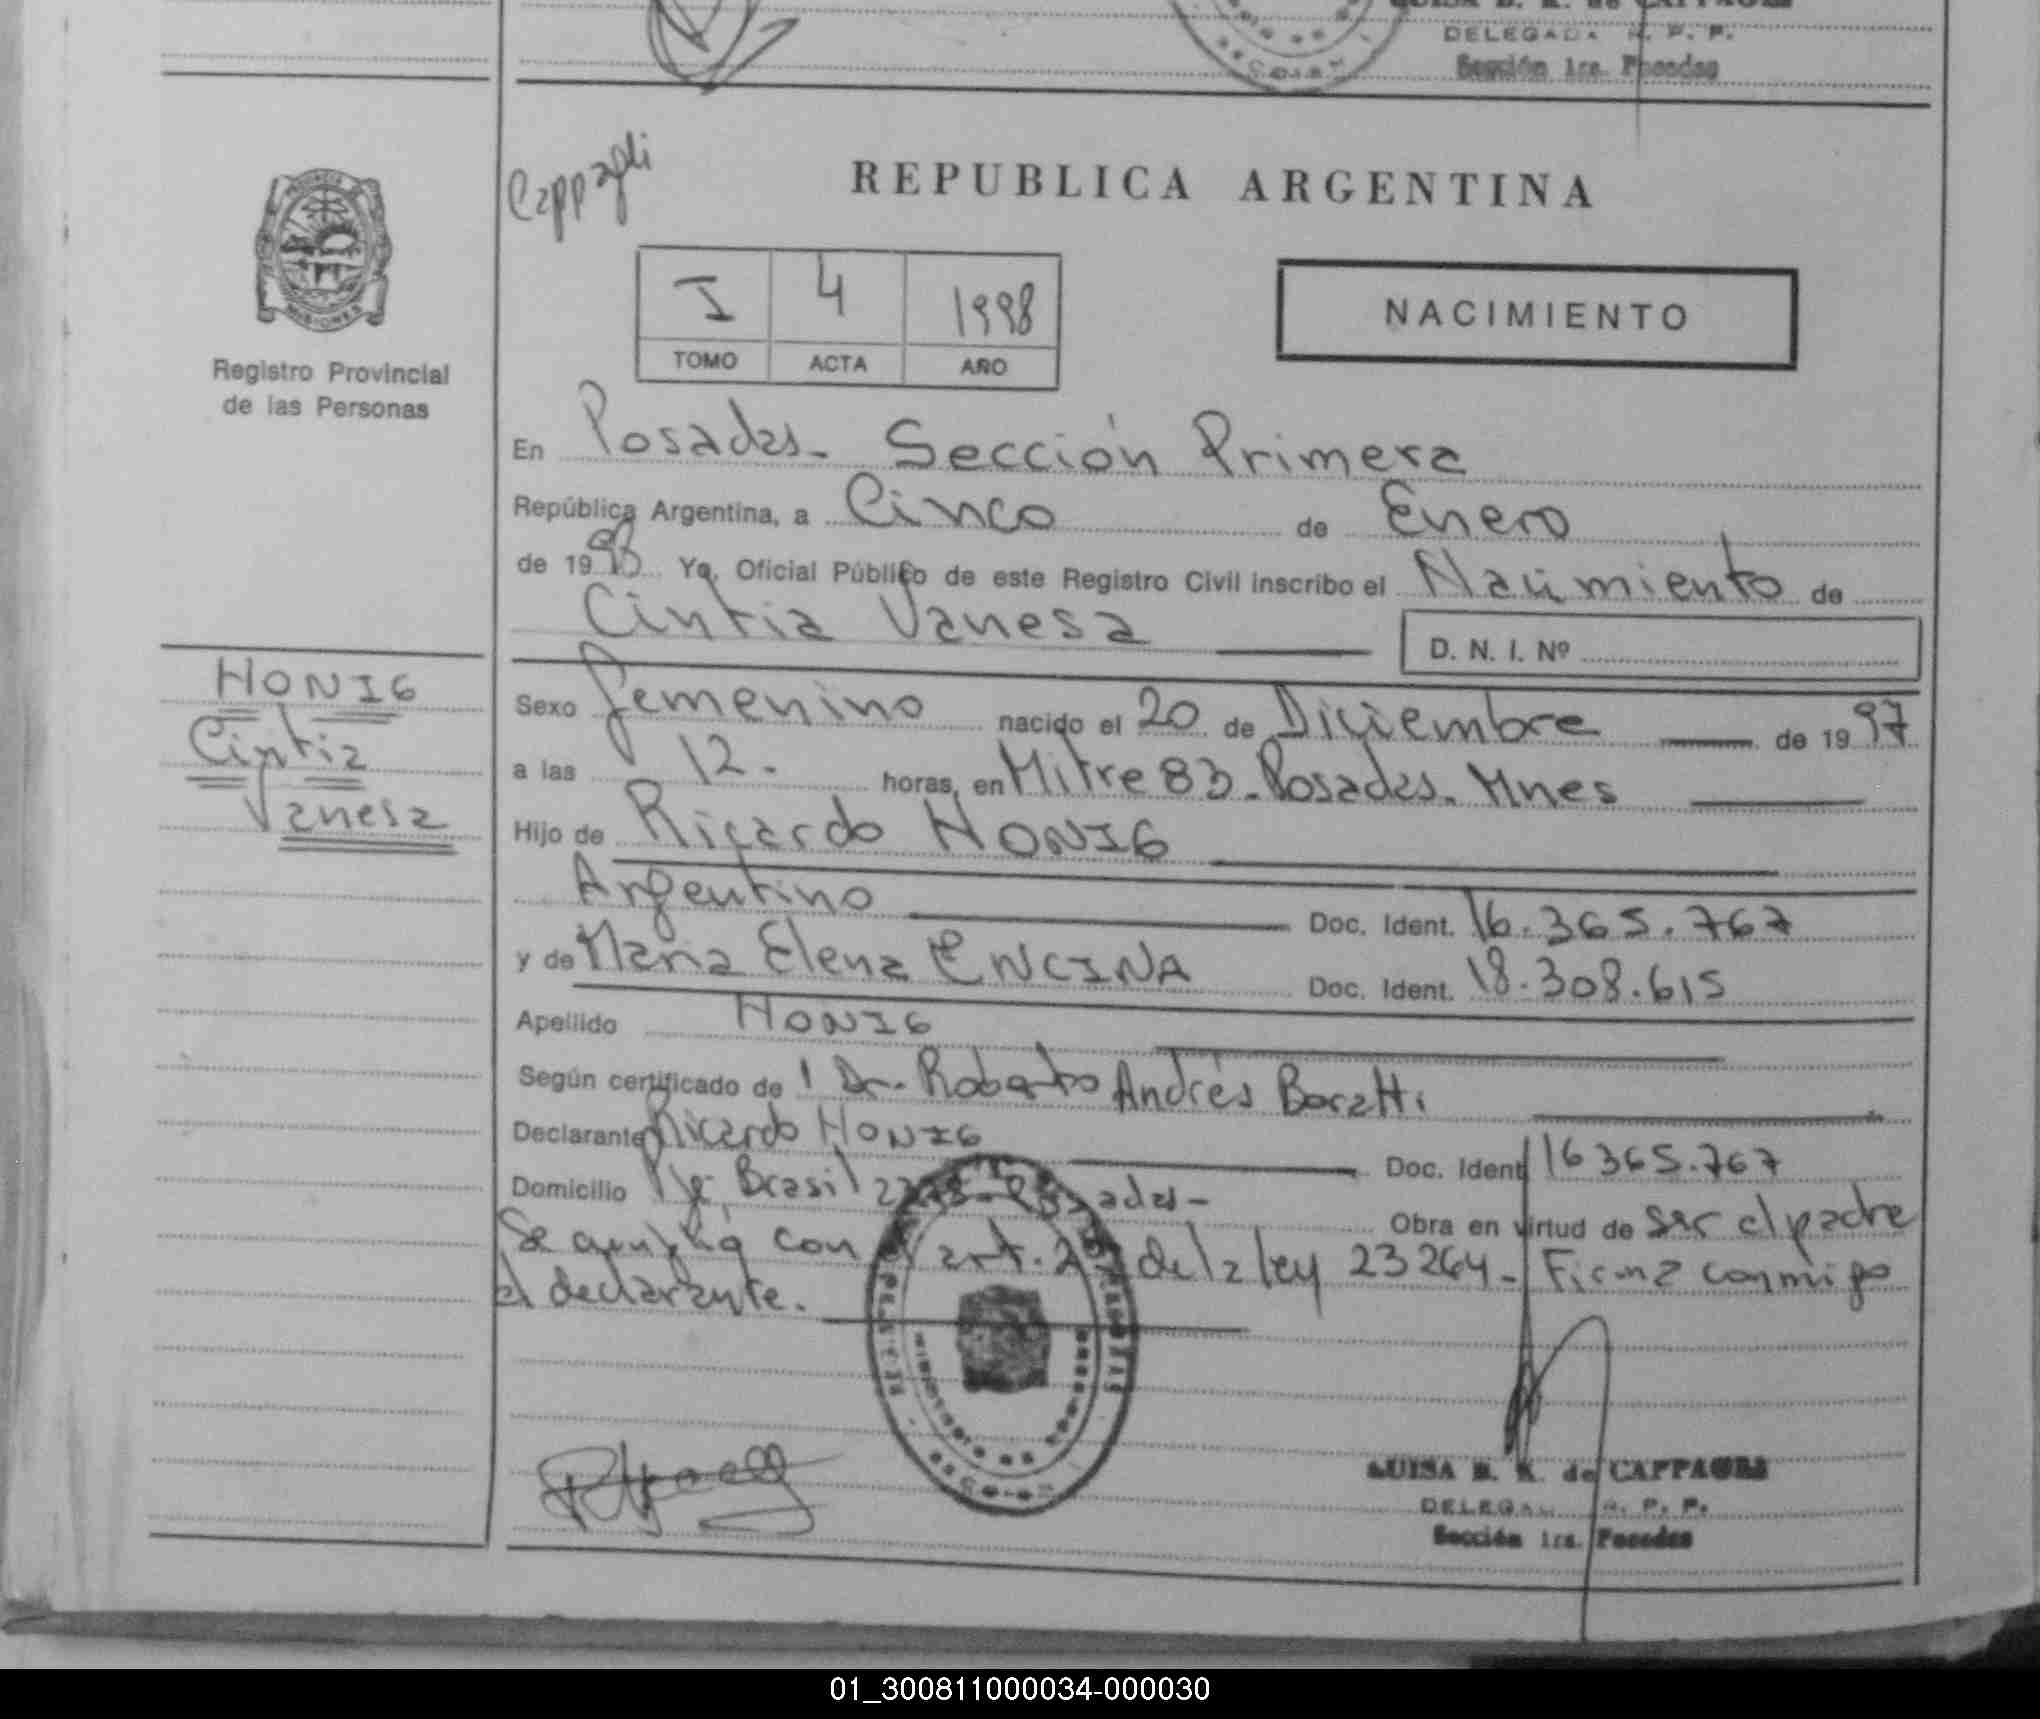 LUISA B. K. de CAPPAGLI
DELEGADA R. P. P.
Sección 1ra. Posadas
Cappagli
REPUBLICA ARGENTINA
I 4 1998
TOMO ACTA AÑO
NACIMIENTO
PROVINCIA DE
MISIONES
Registro Provincial
de las Personas
En Posadas - Sección Primera
República Argentina, a Cinco de Enero
de 1998 Yo, Oficial Público de este Registro Civil inscribo el Nacimiento de
Cintia Vanesa D. N. I. Nº
HONIG
Cintia
Vanesa
Sexo femenino nacido el 20 de Diciembre de 1997
a las 12. horas, en Mitre 83 - Posadas - Mnes
Hijo de Ricardo HONIG
Argentino Doc. Ident. 16.365.767
y de Maria Elena ENCINA Doc. Ident. 18.308.615
Apellido HONIG
Según certificado de l Dr. Roberto Andrés Boratti
Declarante Ricardo HONIG Doc. Ident 16365.767
Domicilio Brasil Posadas -
Obra en virtud de ser el padre
Se cumplió con el art. del a ley 23264 - Firma conmigo
el declarante.
LUISA B. K. de CAPPAGLI
DELEGADA R. P. P.
Sección 1ra. Posadas
01_300811000034-000030